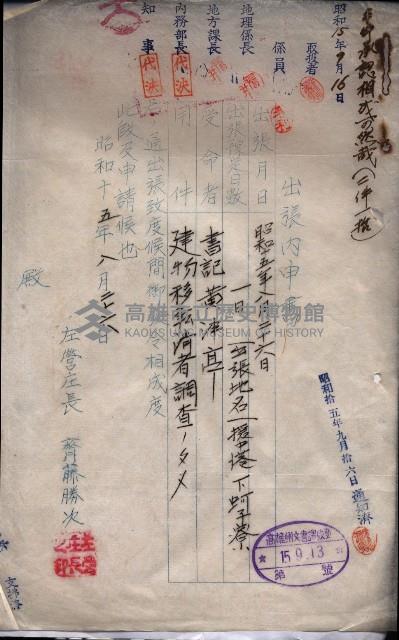 御承認相成可然哉(二件一括)
昭和15年9月16日
取扱者
係員
地理係長
地方課長
内務部長
代決
知事
代決
出張内申書
出張月日
昭和十五年八月二十六日
出張豫定日數
一日
出張地名
援中港 下蚵子寮
受命者
書記
用件
建物移轉消者調査ノタメ
右ノ通出張致度候間御命令相成度
此段及申請候也
昭和十五年八月二十六日
左營庄長 齊藤勝次
殿
昭和拾五年九月拾六日通知濟
高雄州文書課收受
15.9.13
第 號
高雄市立歷史博物館
KAOHSIUNG MUSEUM OF HISTORY